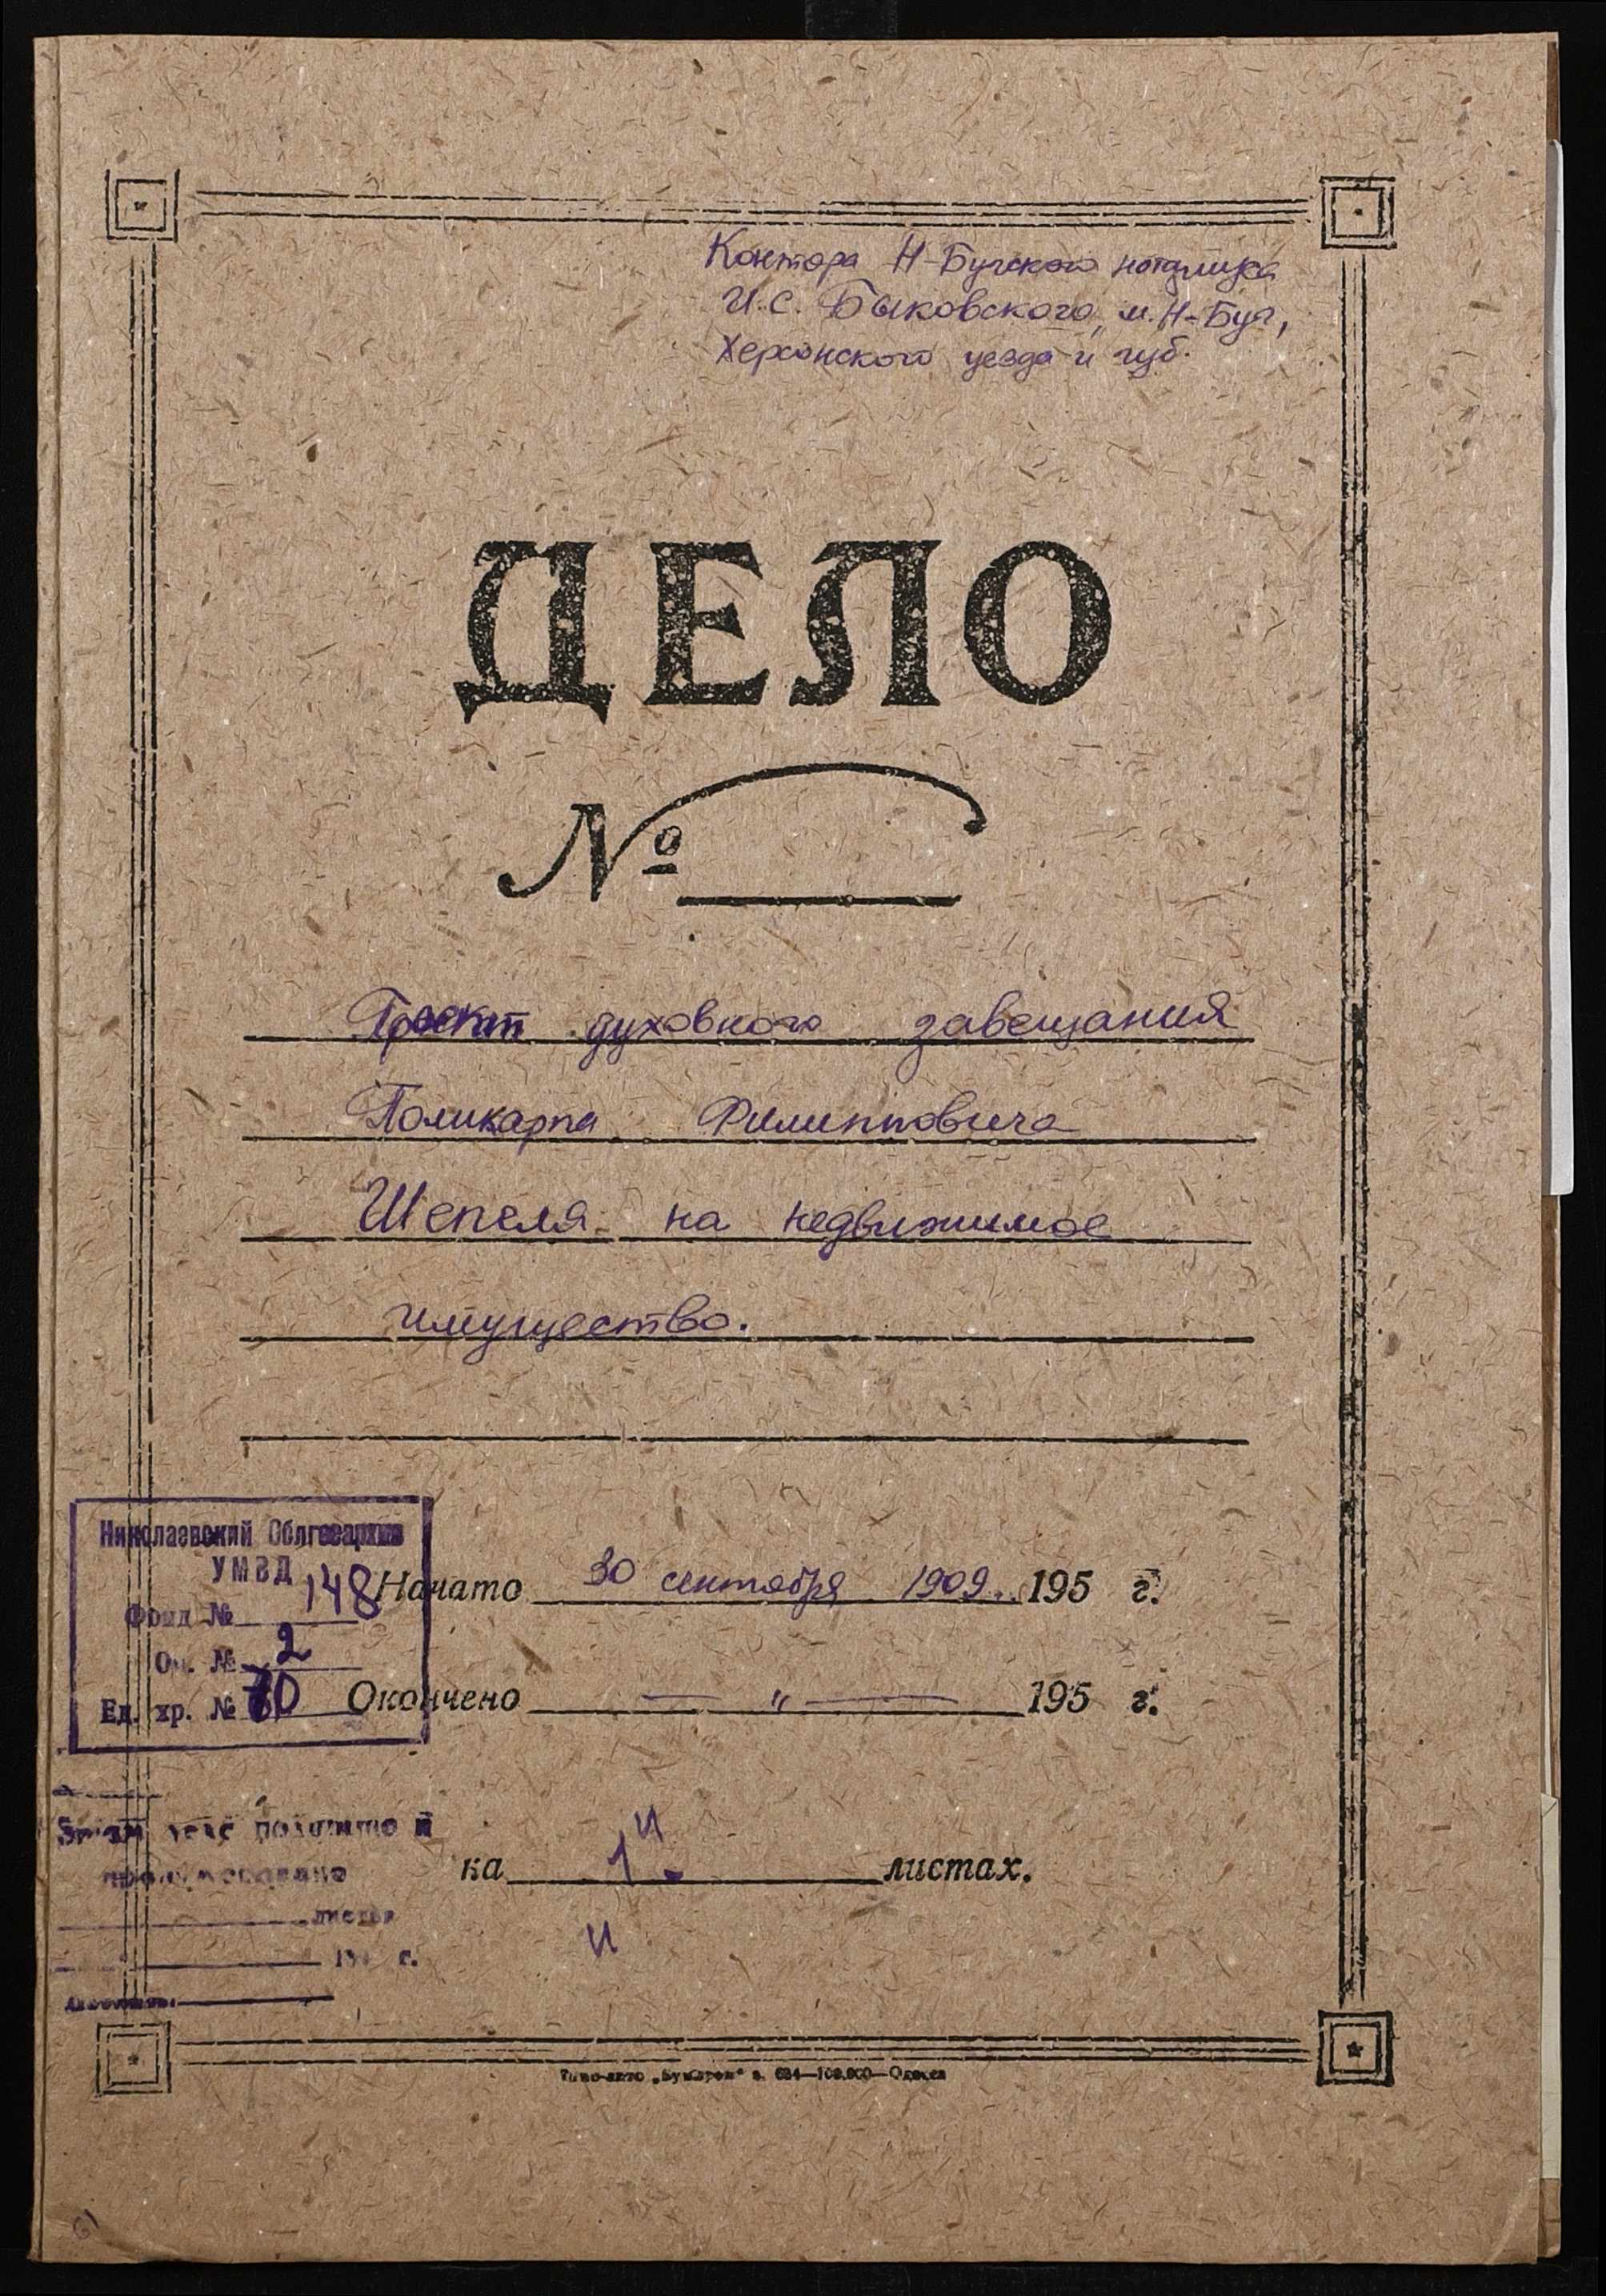 Контора Н-Бугского нотариуса
И.С. Быковского, м. Н-Буг,
Херсонского уезда и губ.
ДЕЛО
№
Проект духовного завещания
Поликарпа Филипповича
Шепеля на недвижимое
имущество.
Николаевский Облгосархив
УМВД
Фонд № 148
Оп. № 2
Ед. хр. № 70
Начато 30 сентября 1909 195 г.
Окончено — " — 195 г.
на 4 листах.
и
листов
г.